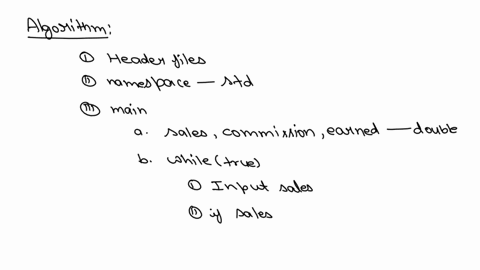 Algorithm:
(i) Header files
(ii) namespace — std
(iii) main
a. sales, commission, earned — double
b. while(true)
(i) Input sales
(ii) if sales